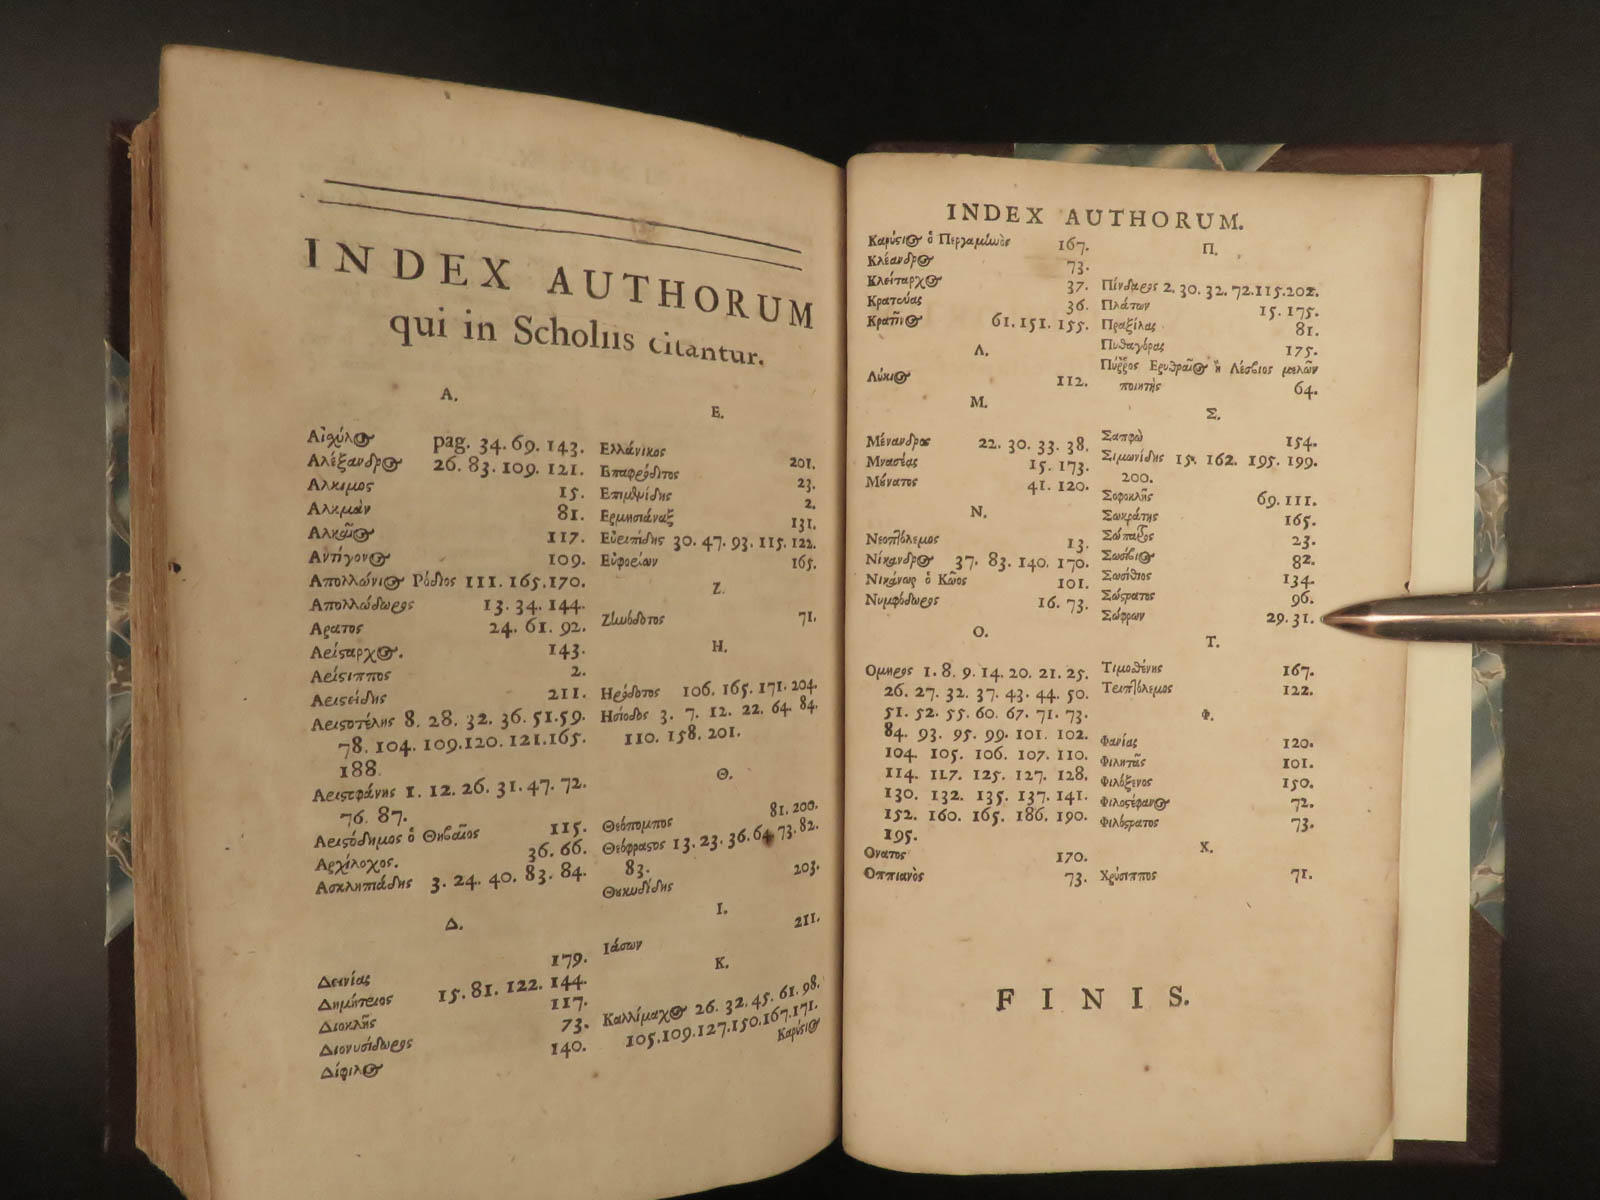 INDEX AUTHORUM
qui in Scholiis citantur.
A.
Αἰχύλος pag. 34. 69. 143.
Αλέξανδρος 26. 83. 109. 121.
Αλκιμος 15.
Αλκμὰν 81.
Αλκαῖος 117.
Αντίγονος 109.
Απολλώνιος Ρόδιος 111. 165. 170.
Απολλόδωρος 13. 34. 144.
Αρατος 24. 61. 92.
Αρίσταρχος. 143.
Αρίσιππος 2.
Αριστείδης 211.
Αριστοτέλης 8. 28. 32. 36. 51. 59.
78. 104. 109. 120. 121. 165.
188.
Αριστοφάνης 1. 12. 26. 31. 47. 72.
76. 87.
Αριστόδημος ὁ Θηβαῖος 115.
Αρχίλοχος. 36. 66.
Ασκληπιάδης 3. 24. 40. 83. 84.
Δ.
Δεινίας 179.
Δημήτριος 15. 81. 122. 144.
Διοκλῆς 117.
Διονυσόδωρος 73.
Δίφιλος 140.
E.
Ελλάνικος 201.
Επαφρόδιτος 23.
Επιμενίδης 2.
Ερμησιάναξ 131.
Εὐριπίδης 30. 47. 93. 115. 122.
Εὐφορίων 165.
Z.
Ζηνόδοτος 71.
H.
Ηρόδοτος 106. 165. 171. 204.
Ησίοδος 3. 7. 12. 22. 64. 84.
110. 158. 201.
Θ.
Θεόπομπος 81. 200.
Θεόφραστος 13. 23. 36. 64. 73. 82.
83.
Θουκυδίδης 203.
I.
Ιάσων 211.
K.
Καλλίμαχος 26. 32. 45. 61. 98.
105. 109. 127. 150. 167. 171.
Καρύστιος
INDEX AUTHORUM.
Καρύστιος ὁ Περγαμηνὸς 167.
Κλέανδρος 73.
Κλείταρχος 37.
Κρατεύας 36.
Κρατῖνος 61. 151. 155.
Λ.
Λύκιος 112.
M.
Μένανδρος 22. 30. 33. 38.
Μνασέας 15. 173.
Μύνατος 41. 120.
N.
Νεοπτόλεμος 13.
Νίκανδρος 37. 83. 140. 170.
Νικάνωρ ὁ Κῶος 101.
Νυμφόδωρος 16. 73.
O.
Ομηρος 1. 8. 9. 14. 20. 21. 25.
26. 27. 32. 37. 43. 44. 50.
51. 52. 55. 60. 67. 71. 73.
84. 93. 95. 99. 101. 102.
104. 105. 106. 107. 110.
114. 117. 125. 127. 128.
130. 132. 135. 137. 141.
152. 160. 165. 186. 190.
195.
Ονατος 170.
Οππιανὸς 73.
Π.
Πίνδαρος 2. 30. 32. 72. 115. 202.
Πλάτων 15. 175.
Πραξίλας 81.
Πυθαγόρας 175.
Πύῤῥος Ερυθραῖος ἢ Λέσβιος μελῶν
ποιητὴς 64.
Σ.
Σαπφὼ 154.
Σιμωνίδης 15. 162. 195. 199.
200.
Σοφοκλῆς 69. 111.
Σωκράτης 165.
Σώπατρος 23.
Σωσίβιος 82.
Σωσίθιος 134.
Σώστρατος 96.
Σώφρων 29. 31.
T.
Τιμοσθένης 167.
Τριπτόλεμος 122.
Φ.
Φανίας 120.
Φιλητᾶς 101.
Φιλόξενος 150.
Φιλοστέφανος 72.
Φιλόστρατος 73.
X.
Χρύσιππος 71.
FINIS.